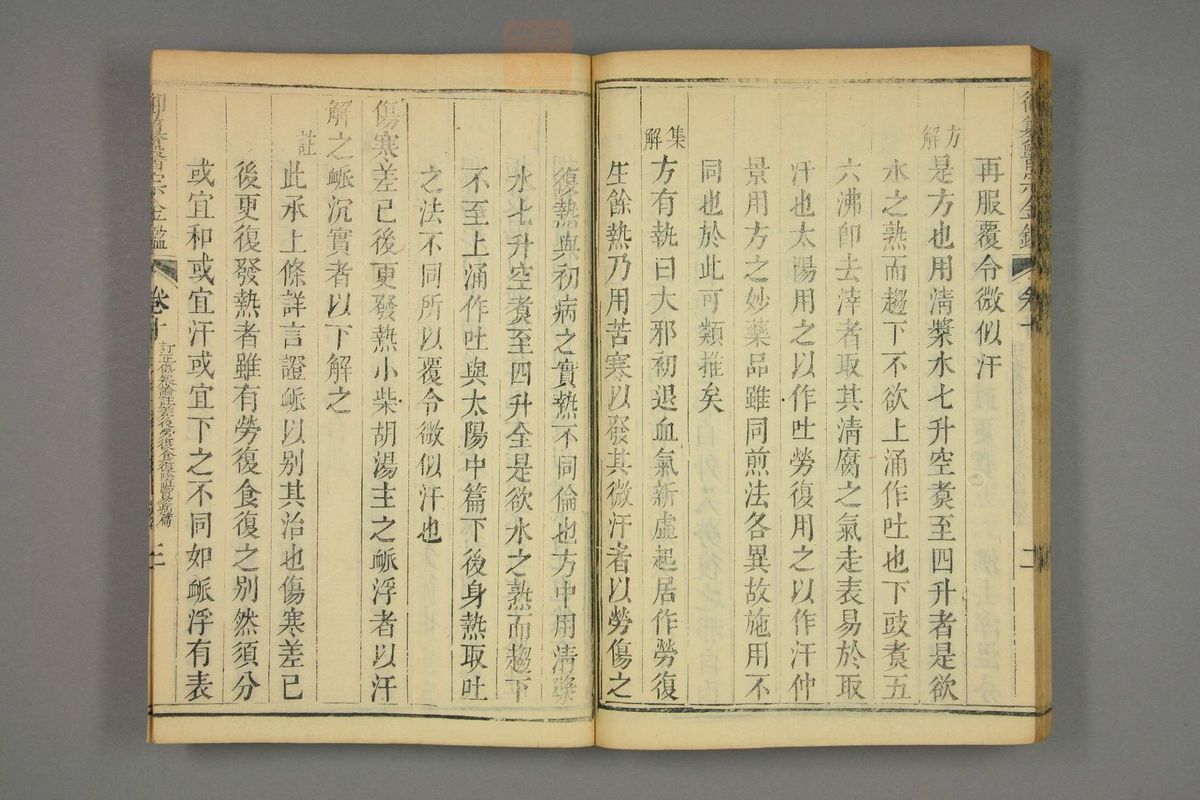 再服覆令微似汗
方解
是方也用淸漿水七升空煑至四升者是欲
水之熟而趨下不欲上涌作吐也下豉煑五
六沸卽去滓者取其淸腐之氣走表易於取
汗也太陽用之以作吐勞復用之以作汗仲
景用方之妙藥品雖同煎法各異故施用不
同也於此可類推矣
集解
方有執曰大邪初退血氣新虛起居作勞復
生餘熱乃用苦寒以發其微汗者以勞傷之
復熱與初病之實熱不同倫也方中用淸漿
水七升空煑至四升全是欲水之熟而趨下
不至上涌作吐與太陽中篇下後身熱取吐
之法不同所以覆令微似汗也
傷寒差已後更發熱小柴胡湯主之脈浮者以汗
解之脈沉實者以下解之
註
此承上條詳言證脈以别其治也傷寒差已
後更復發熱者雖有勞復食復之别然須分
或宜和或宜汗或宜下之不同如脈浮有表
御纂醫宗金鑑
卷十
訂正傷寒論註差後勞復食復陰陽易病篇